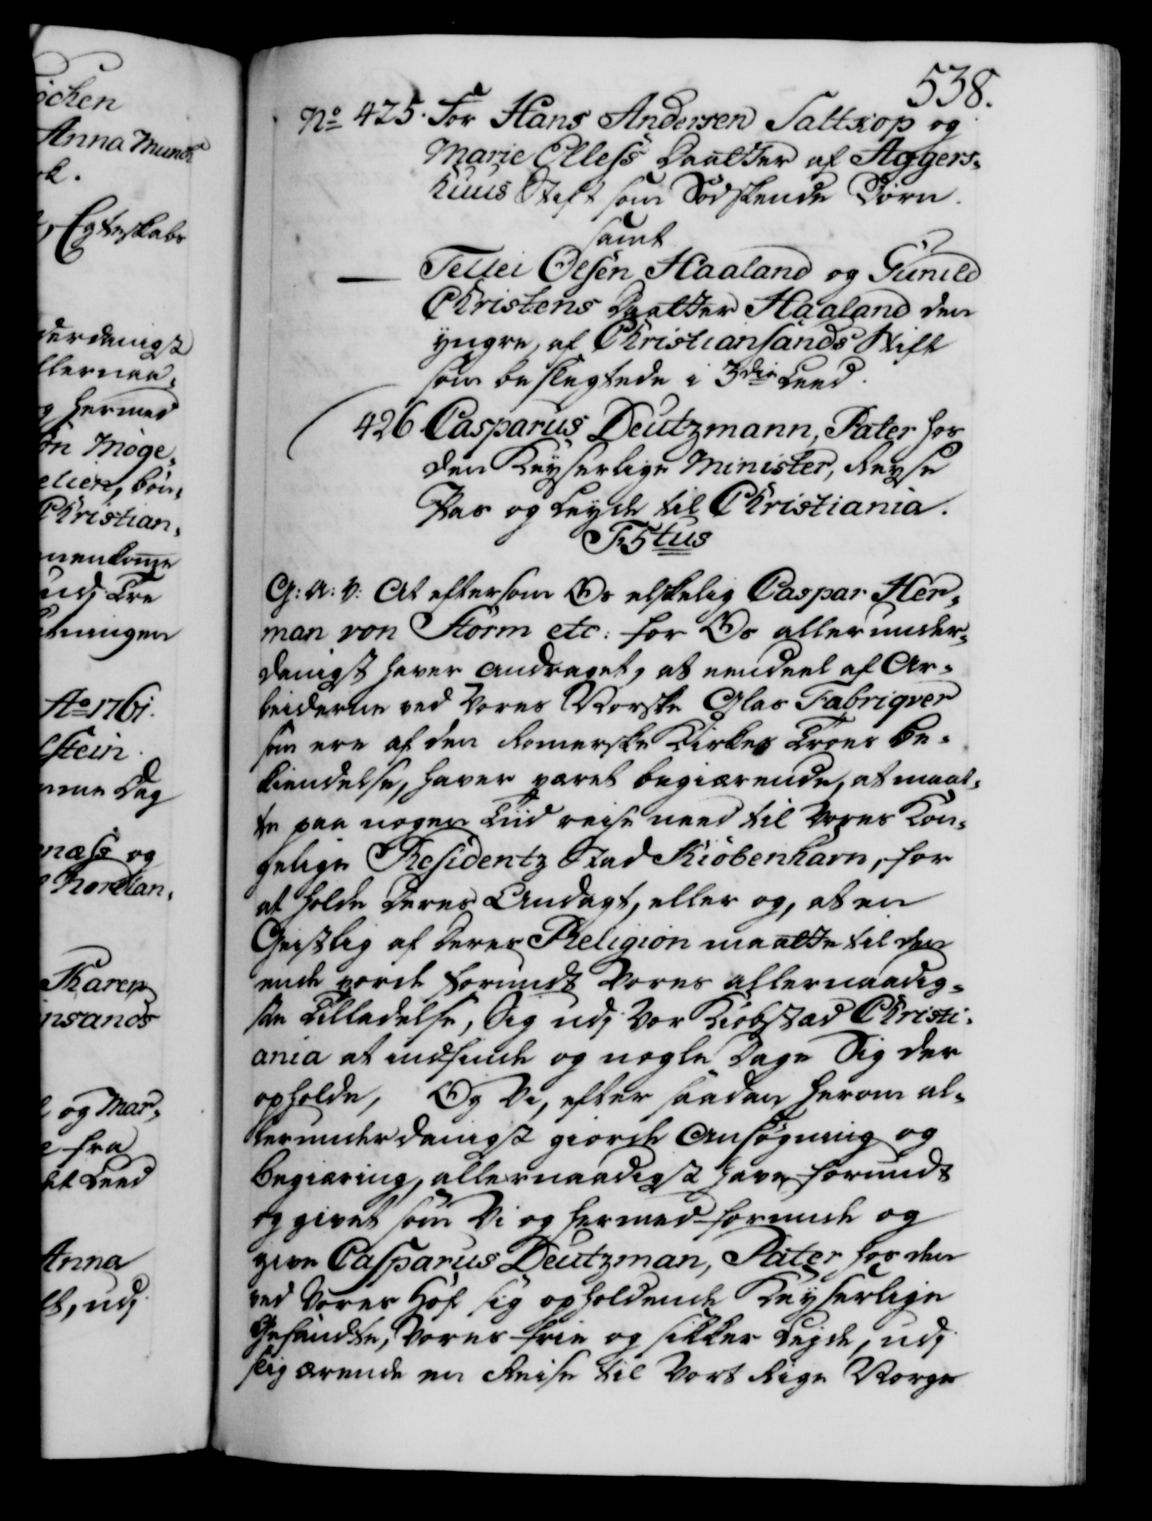 538.
No 425. For Hans Andersen Saltkop og
Marie Elless Daatter af Aggers-
huus Stift som Sødskende Børn.
samt
— Tellei Olsen Haaland og Gunild
Christens Daatter Haaland den
yngre, af Christiansands Stift
som beslegtede i 3die Leed.
426 Casparus Deutzmann, Pater hos
den Keyserlige Minister, Reyse
Pas og Leyde til Christiania.
F. 5tus
G: A: V: At eftersom Os elskelig Caspar Her-
man von Storm etc: for Os allerunder-
danigst haver andraget, at eendeel af Ar-
beiderne ved Vores Norske Glas Fabriqver
som ere af den Romerske Kirkes Troes Be-
kiendelse, haver været begiærende, at maat-
te paa nogen Tiid reise need til Vores Kon-
gelige Residentz Stad Kiøbenhavn, for
at holde deres Andagt, eller og, at en
Geistlig af deres Religion maatte til den
ende vorde forundt Vores allernaadig-
ste Tilladelse, Sig udj Vor Kiøbstad Christi-
ania at indfinde og nogle Dage Sig der
opholde, Og Vi, efter saadan herom al-
lerunderdanigst giorde Ansøgning og
Begiæring, allernaadigst have forundt
og givet som Vi og hermed forunde og
give Casparus Deutzman, Pater hos den
ved Vores Hof sig opholdende Keyserlige
Gesandte, Vores frie og sikker Leide, udj
slig ærende en Reise til Vort Rige Norge
öchen
Anna Mund
Egteskabs
derdanigst
llernaa-
hermed
Møge-
Christian-
udj Tre
Ao 1761.
stein.
Dag
og
Karen
nsands
og Mar-
fra
Leed
Anna
udj